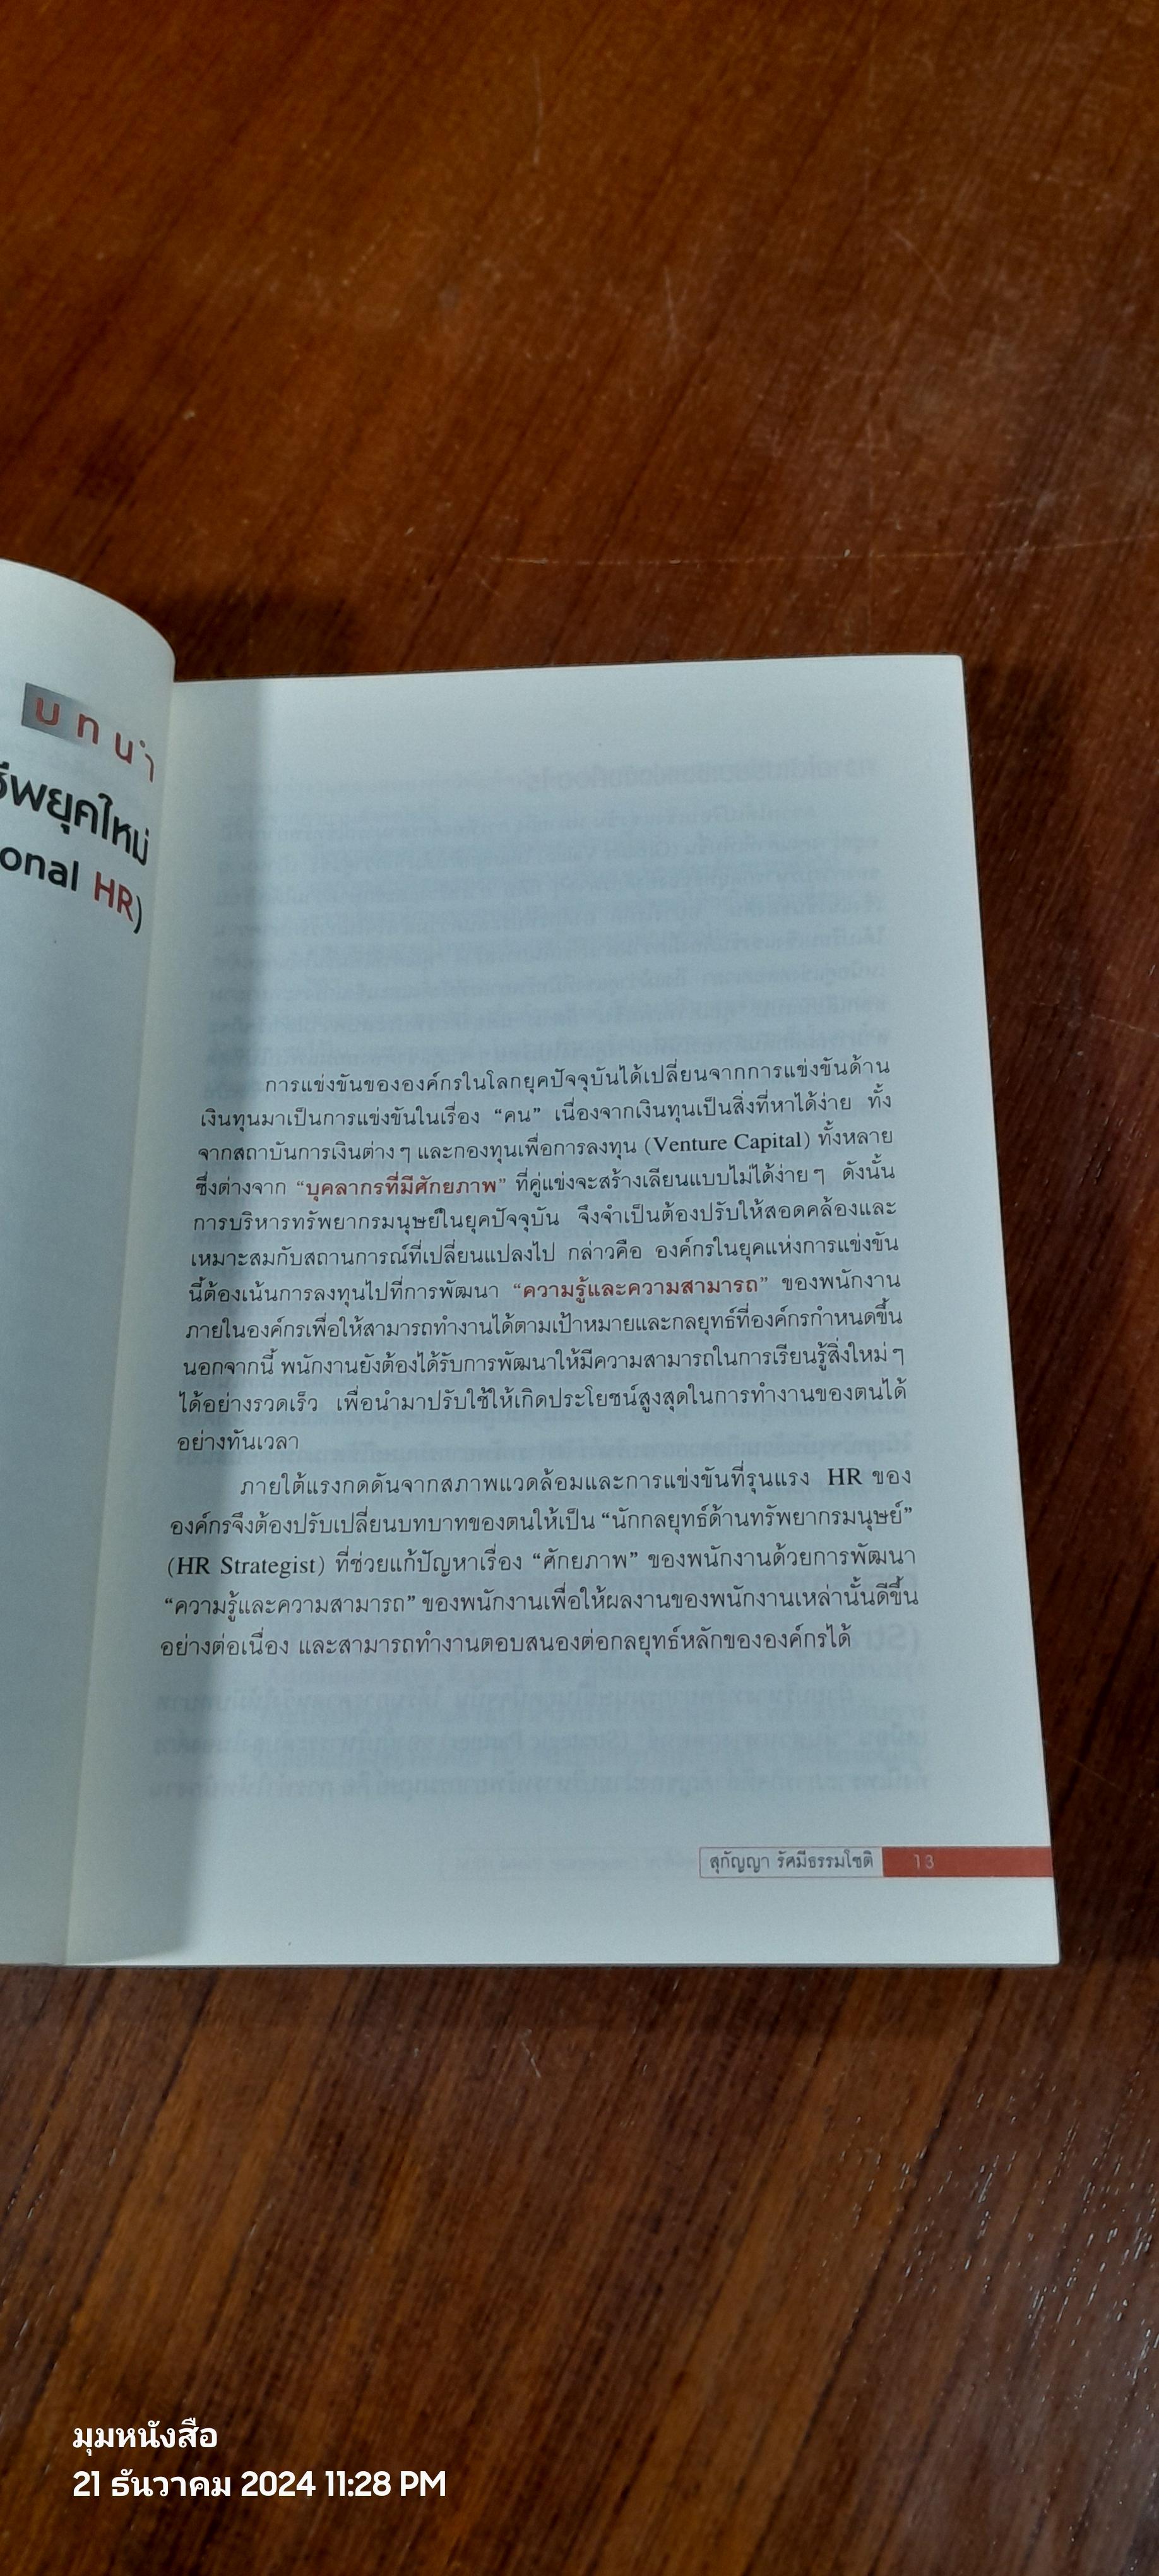 บทนำ
ชีพยุคใหม่
onal HR)
การแข่งขันขององค์กรในโลกยุคปัจจุบันได้เปลี่ยนจากการแข่งขันด้าน
เงินทุนมาเป็นการแข่งขันในเรื่อง “คน” เนื่องจากเงินทุนเป็นสิ่งที่หาได้ง่าย ทั้ง
จากสถาบันการเงินต่าง ๆ และกองทุนเพื่อการลงทุน (Venture Capital) ทั้งหลาย
ซึ่งต่างจาก “บุคลากรที่มีศักยภาพ” ที่คู่แข่งจะสร้างเลียนแบบไม่ได้ง่าย ๆ ดังนั้น
การบริหารทรัพยากรมนุษย์ในยุคปัจจุบัน จึงจำเป็นต้องปรับให้สอดคล้องและ
เหมาะสมกับสถานการณ์ที่เปลี่ยนแปลงไป กล่าวคือ องค์กรในยุคแห่งการแข่งขัน
นี้ต้องเน้นการลงทุนไปที่การพัฒนา “ความรู้และความสามารถ” ของพนักงาน
ภายในองค์กรเพื่อให้สามารถทำงานได้ตามเป้าหมายและกลยุทธ์ที่องค์กรกำหนดขึ้น
นอกจากนี้ พนักงานยังต้องได้รับการพัฒนาให้มีความสามารถในการเรียนรู้สิ่งใหม่ ๆ
ได้อย่างรวดเร็ว เพื่อนำมาปรับใช้ให้เกิดประโยชน์สูงสุดในการทำงานของตนได้
อย่างทันเวลา
ภายใต้แรงกดดันจากสภาพแวดล้อมและการแข่งขันที่รุนแรง HR ของ
องค์กรจึงต้องปรับเปลี่ยนบทบาทของตนให้เป็น “นักกลยุทธ์ด้านทรัพยากรมนุษย์”
(HR Strategist) ที่ช่วยแก้ปัญหาเรื่อง “ศักยภาพ” ของพนักงานด้วยการพัฒนา
“ความรู้และความสามารถ” ของพนักงานเพื่อให้ผลงานของพนักงานเหล่านั้นดีขึ้น
อย่างต่อเนื่อง และสามารถทำงานตอบสนองต่อกลยุทธ์หลักขององค์กรได้
สุกัญญา รัศมีธรรมโชติ 13
มุมหนังสือ
21 ธันวาคม 2024 11:28 PM